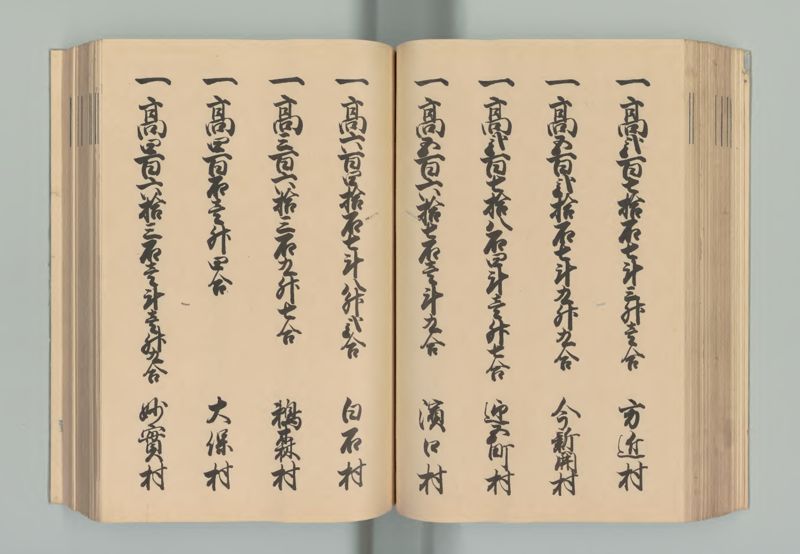 一高弐百七拾石七斗三升壱合 方近村
一高五百弐拾石七斗九升九合 今新開村
一高弐百七拾八石四斗壱升七合 迎町村
一高五百六拾七石壱斗九合 濱口村
一高六百四拾石七斗八升弐合 白石村
一高三百六拾三石九升七合 鵜森村
一高四百石壱升四合 大保村
一高四百六拾三石壱斗壱升九合 妙實村